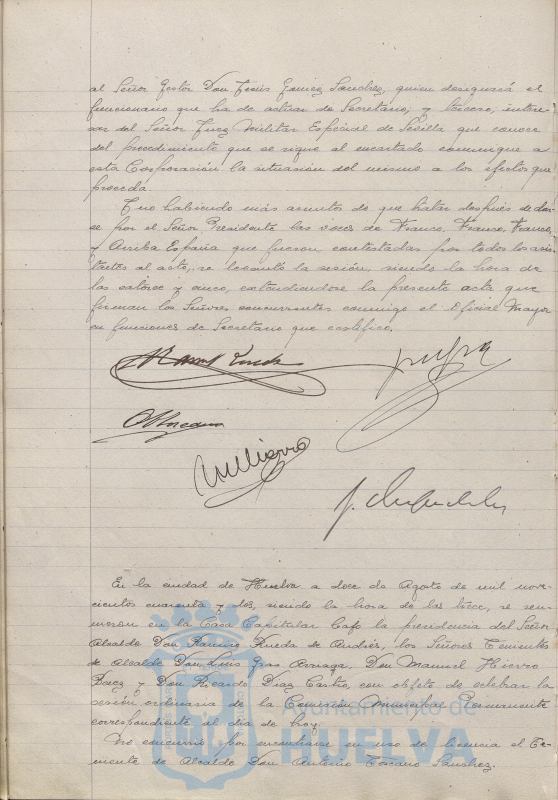 al Señor Gestor Don Jesús Gomez Sanchez, quien designará el
funcionario que ha de actuar de Secretario; y tercero, intere-
sar del Señor Juez Militar Especial de Sevilla que conoce
del procedimiento que se sigue al encartado comunique a
esta Corporación la situación del mismo a los efectos que
proceda.
Y no habiendo más asuntos de que tratar después de dar-
se por el Señor Presidente las voces de Franco, Franco, Franco,
y Arriba España que fueron contestadas por todos los asis-
tentes al acto, se levantó la sesión, siendo la hora de
las catorce y cinco, extendiendose la presente acta que
firman los Señores concurrentes conmigo el Oficial Mayor
en funciones de Secretario que certifico.
En la ciudad de Huelva a doce de Agosto de mil nove-
cientos cuarenta y dos, siendo la hora de las trece, se reu-
nieron en la Casa Capitular bajo la presidencia del Señor
Alcalde Don Ramiro Rueda de Andrés, los Señores Tenientes
de Alcalde Don Luis Don Manuel Hierro
Baez y Don Ricardo Diaz Castro, con objeto de celebrar la
sesión ordinaria de la Comisión Municipal Permanente
correspondiente al día de hoy.
No concurrió por encontrarse en uso de licencia el Te-
niente de Alcalde Don Antonio Toscano Sanchez.
Ayuntamiento de
HUELVA